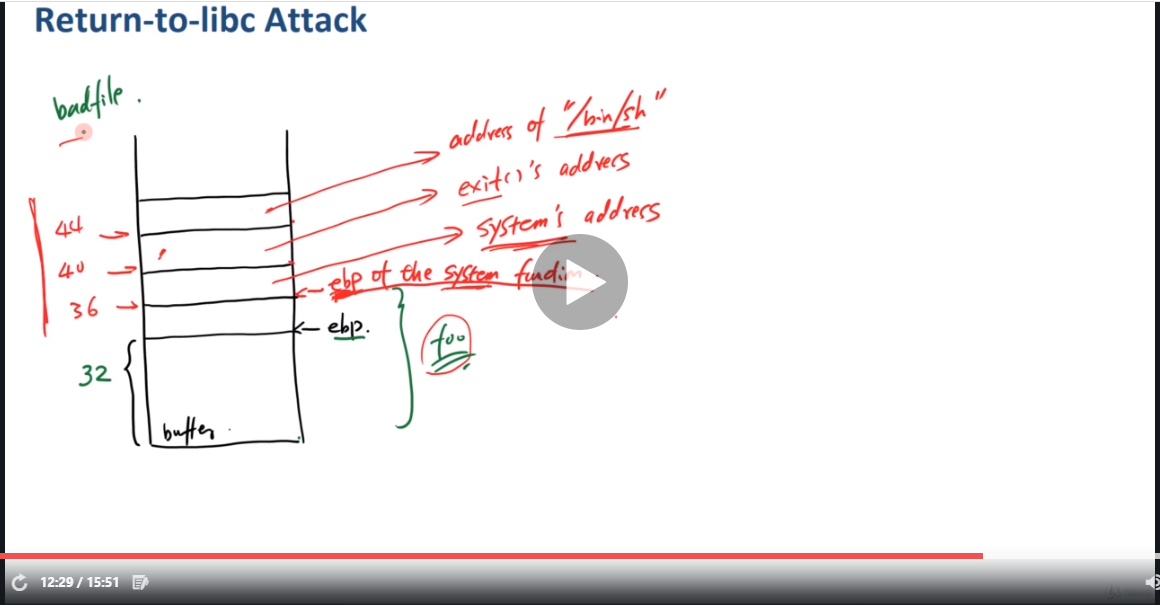 Return-to-libc Attack
badfile.
address of "/bin/sh"
exit()'s address
44
system's address
40
ebp of the system
36
ebp.
foo
32
buffer
12:29 / 15:51